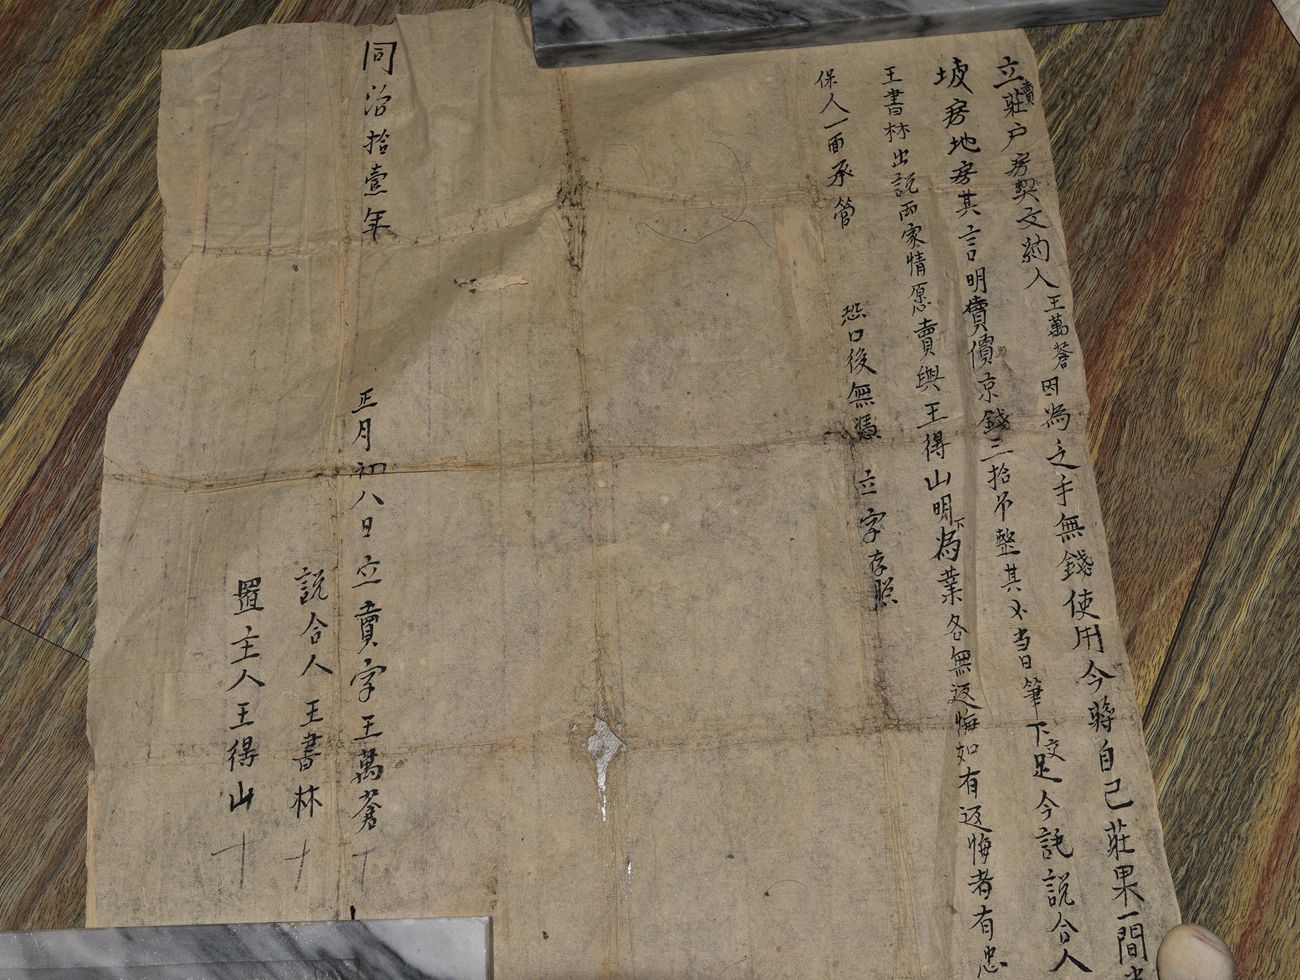 立賣莊户房契文約人王萬蒼因為乏手無錢使用今蔣自己莊果一間
坡房地房其言明賣價京錢三拾吊整其當日筆下交足今託說合人
王書林出說兩家情愿賣與王得山明下為業各無返悔如有返悔者有忠
保人一面承管 恐口後無憑 立字存照
同治拾壹年 正月初八日立賣字王萬蒼 十
說合人王書林 十
置主人王得山 十